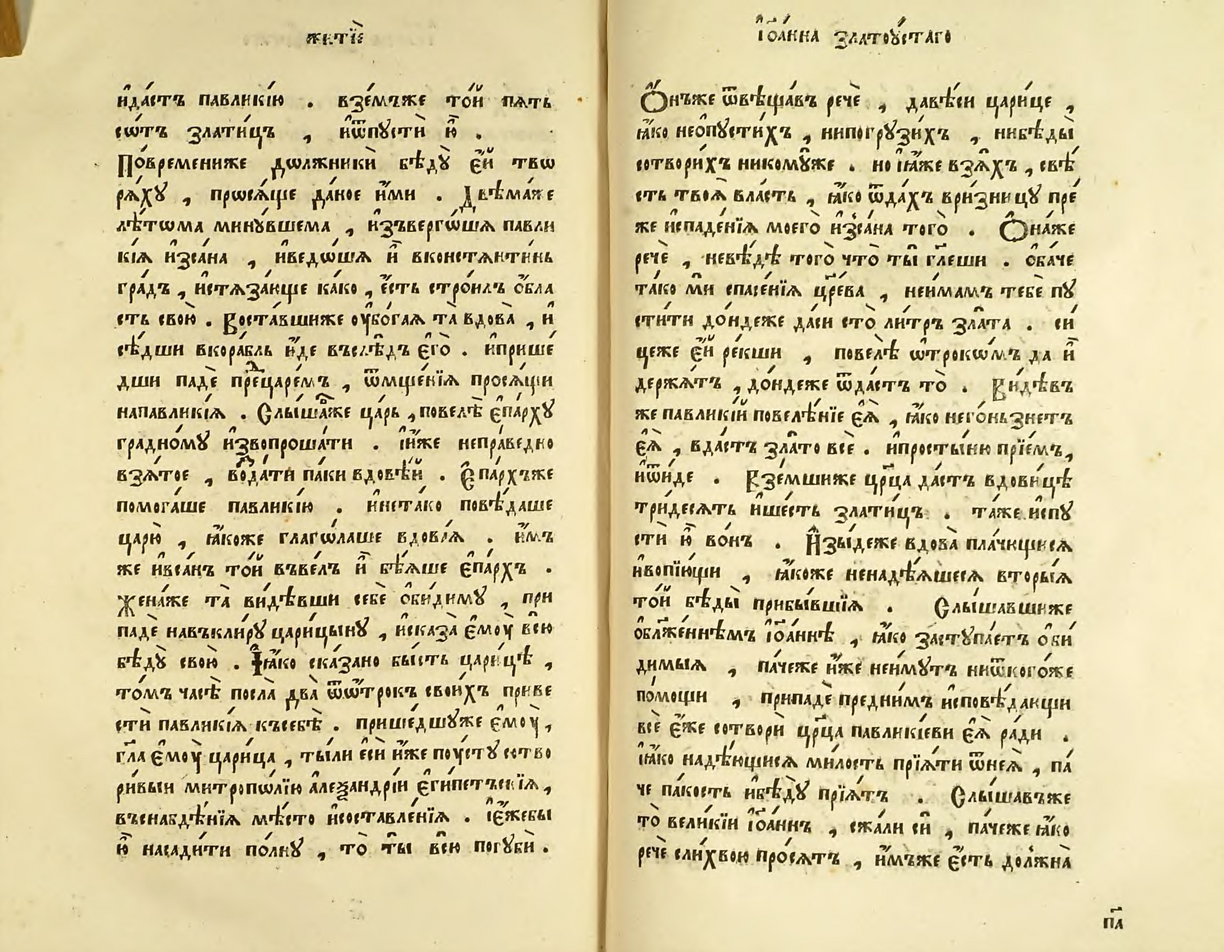 житїе
и҆да́стъ павлики́ю . взе́мъже то́й пѧ́ть
сѡ́тъ златицъ , и҆ѿпꙋстѝ ю҆̀ .
Повремениже дѡлжникѝ бѣдꙋ̀ є҆́й твѡ
рѧ́хꙋ , прѡсѧ́ще да́ное и҆́ми . Двѣма́же
лѣ́тѡма минꙋ́вшема , и҆зъве́ргѡшѧ павли
кі́ѧ и҆ѕса́на , и҆ведо́шѧ и҆̀ вконстѧнти́нь
гра́дъ , и҆стѧза́юще ка́ко , є҆́сть стро́илъ ѻ҆бла
сть свою̀ . Воста́вшиже ᲂу҆бо́гаѧ та̀ вдова̀ , и҆
сѣ́дши вкора́бль и҆́де въслѣ́дъ є҆го̀ . и҆прише́
дши падѐ пре́дцаре́мъ , ѿмще́нїѧ просѧ́щи
напавлики́ѧ . Слы́шавже ца́рь , повелѣ̀ є҆па́рхꙋ
гра́дномꙋ и҆звопроша́ти . и҆и҆́же непра́ведно
взѧ́тое , во́дати па́ки вдовѣ́й . Є҆па́рхъже
помога́ше павлики́ю . и҆нета́ко повѣ́даше
царю̀ , ꙗ҆́коже глаго́лаше вдови́ѧ . и҆́мъ
же и҆всанъ то́й въве́лъ и҆̀ бѣ́ѧше є҆па́рхъ .
Жена́же та̀ ви́дѣвши себѐ ѻ҆би́димꙋ , при
падѐ навъкли́рꙋ цари́цынꙋ , и҆сказа̀ є҆мꙋ̀ всю̀
бѣдꙋ̀ свою̀ . Ꙗ҆́ко ска́зано бы́сть цари́цѣ ,
то́мъ часѣ̀ посла̀ два̀ ѿѻ҆́трокъ свои́хъ приве
стѝ павлики́ѧ къ себѣ̀ . прише́дшꙋже є҆мꙋ̀ ,
гла є҆мꙋ̀ цари́ца , ты́ли є҆сѝ и҆́же пꙋ́стꙋ сотво
ри́выи митропѡ́лїю алеѯандрі́и є҆ги́петъскїѧ ,
въснабдѣ́нїѧ мѣ́сто и҆составле́нїѧ . і҆є҆́жебы
ю҆̀ насади́ти по́лнꙋ , то̀ ты̀ всю̀ погꙋбѝ .
і҆ѡа́нна златоꙋ́стаго
Ѻ҆́нъже ѿвѣща́въ речѐ , да́вѣси цари́це ,
ꙗ҆́ко неопꙋсти́хъ , нипогрꙋзи́хъ , нибѣды̀
сотвори́хъ никомꙋ́же . но ꙗ҆́же взѧ́хъ , свѣ́
сть твоѧ̀ вла́сть , ꙗ҆́ко ѿда́хъ вризницꙋ пре́
же и҆спаде́нїѧ моегѡ̀ и҆зса́на того̀ . Ѻ҆на́же
речѐ , невѣ́дѣ того̀ что̀ ты̀ гл҃еши . ѻ҆ба́че
та́ко мѝ спасе́нїѧ цр҃ева , неи́мамъ тебѐ пꙋ
сти́ти до́ндеже да́си сто̀ ли́тръ зла́та . си́
цеже є҆́й ре́кши , повелѣ̀ ѡ҆трокѡ́мъ да и҆̀
держѧ́тъ , до́ндеже ѿда́стъ то̀ . Ви́дѣвъ
же павлики́й повелѣ́нїе є҆ѧ̀ , ꙗ҆́ко него́ньзнетъ
є҆ѧ̀ , вда́стъ зла́то всѐ . и҆простыню прїе́мъ ,
и҆ѿи́де . Взе́мшиже цр҃ца да́стъ вдови́цѣ
три́десѧть и҆ше́сть златицъ . та́же и҆спꙋ
стѝ ю҆̀ во́нъ . И҆зы́деже вдова̀ пла́чющисѧ
и҆вопїю́щи , ꙗ҆́коже ненадѣ́ѧшесѧ вторы́ѧ
то́й бѣды̀ прибы́вшїѧ . Слы́шавшиже
ѻ҆бл҃же́ннѣмъ і҆ѡа́ннѣ , ꙗ҆́ко застꙋпа́етъ ѻ҆би́
димыѧ , па́чеже и҆́же неи́мꙋтъ ниѿкого́же
по́мощи , припадѐ предни́мъ и҆сповѣ́дающи
всѐ є҆́же сотворѝ цр҃ца павлики́еви є҆ѧ̀ ра́ди .
ꙗ҆́ко надѣ́ющисѧ ми́лость прїѧ́ти ѿнеѧ̀ , па́
че па́кость и҆бѣдꙋ̀ прїѧ́тъ . Слы́шавъже
то̀ вели́кїи і҆ѡа́ннъ , сжа́лиси , па́чеже ꙗ҆́ко
речѐ сли́хвою про́сѧтъ , и҆́мъже є҆́сть должна̀
па